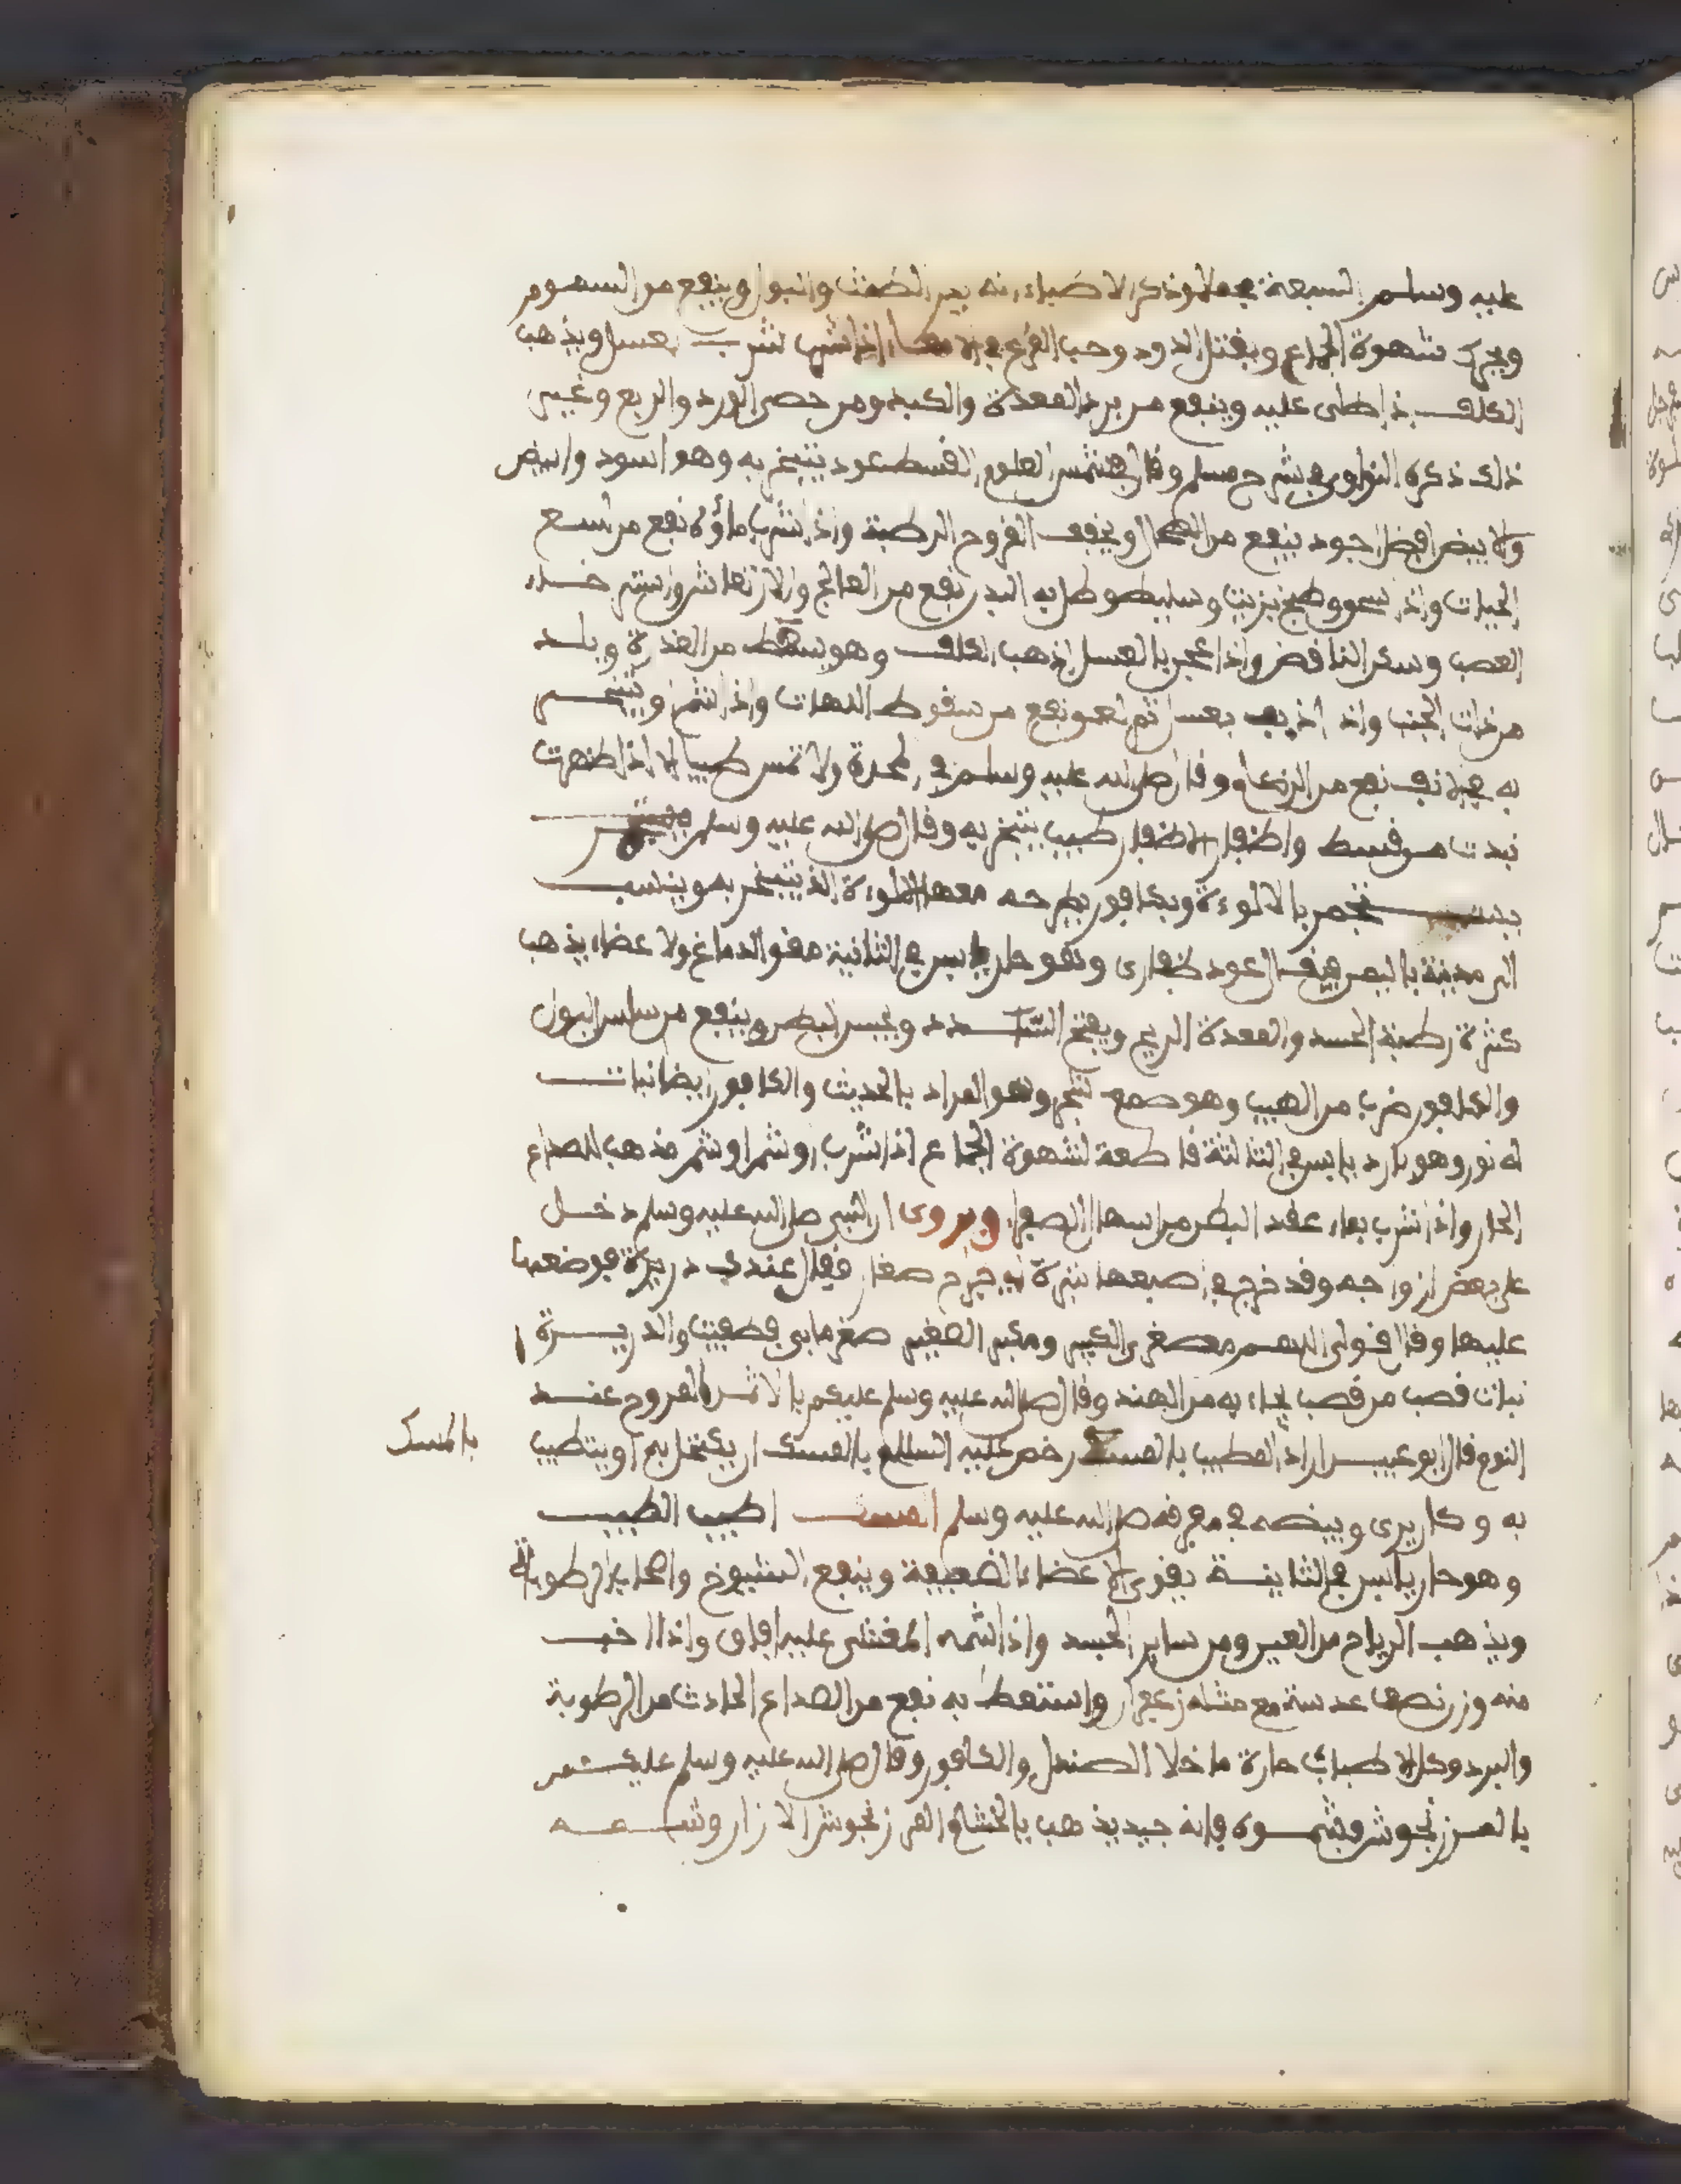 عليه وسلم السبعة مجملا وذكر الاطباء انه يدر الطمث والبول وينفع من السموم
ويحرك شهوة الجماع ويقتل الدود وحب القرع في الامعاء اذا شرب بعسل ويذهب
الكلف اذا طلى عليه وينفع من برد المعدة والكبد ومن حمى الورد والربع وغير
ذلك ذكره النواوي في شرح مسلم وقال في شمس العلوم القسط عود يتبخر به وهو اسود وابيض
والابيض افضل اجود ينفع من ويجفف القروح الرطبة واذا شرب ماؤه نفع من لسع
الحيات واذا سحق وطبخ بزيت وسليط وطلى به البدن نفع من الفالج والارتعاش واسترخاء
العصب وسكن النافض واذا عجن بالعسل اذهب الكلف وهو يسعط من العذرة ويلد
من ذات الجنب واذا اذيب بعسل ثم لعق نفع من سقوط اللهات واذا اشتم او يتبخر
به في الانف نفع من الزكام وقال صلى الله عليه وسلم في المحدة ولا تمس طيبا الا اذا طهرت
نبذت من قسط واظفار الاظفار طيب يتبخر به وقال صلى الله عليه وسلم
تجمر بالالوة وبكافور يطرحه معها الالوة الذي يتبخر به وينسب
الى مدينة باليمن فيقال عود ظفارى وهو حار يابس في الثانية مقو الدماغ والاعضاء يذهب
كثرة رطبة الجسد والمعدة الريح ويفتح السدد ويحبس البطن وينفع من سلس البول
والكافور ضرب من الطيب وهو صمغ شجر وهو المراد بالحديث والكافور ايضا نبات
له نور وهو بارد يابس في الثالثة قاطعة لشهوة الجماع اذا شرب او شم او شم مذهب للصداع
الحار واذا شرب بماء عقد البطن من اسهال الصفرا ويروى ان النبي صلى الله عليه وسلم دخل
على بعض ازواجه وقد خرج في اصبعها بثرة فقال عندك دريرة فوضعها
عليها وقال قولى اللهم مصغر الكبير ومكبر الصغير صغر ما بي فطفيت والدريرة
نبات قصب من قصب يجاء به من الهند وقال صلى الله عليه وسلم عليكم بالاثمد المروح عند
النوم قال ابو عبيد اراد المطيب بالمسك رخص عليه السلام بالمسك ان يكتحل به او يتطيب
بالمسك
به وكان يرى وبيضه في مفرقه صلى الله عليه وسلم المسك اطيب الطيب
وهو حار يابس في الثانية يقوى الاعضاء الضعيفة وينفع الشيوخ واصحاب الرطوبات
ويذهب الرياح من العين ومن ساير الجسد واذا شمه المغشى عليه افاق واذا اخذ
منه وزن نصف عدسة مع مثله زعفران واستعط به نفع من الصداع الحادث من الرطوبة
والبرد وكل الاطياب حارة ما خلا الصندل والكافور وقال صلى الله عليه وسلم عليكم
بالمرزنجوش فشموه فإنه جيد يذهب بالخشام المرزنجوش الازار وشمه